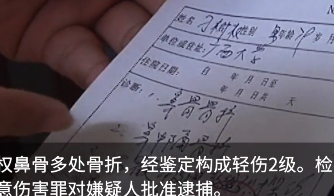 N
姓名 刁树太 性别 男 年龄 29 岁
单位或住址 广西大学
住院日期 自 年 月 日至 年
诊断：1. 鼻骨骨折
2.
权鼻骨多处骨折，经鉴定构成轻伤2级。检
意伤害罪对嫌疑人批准逮捕。